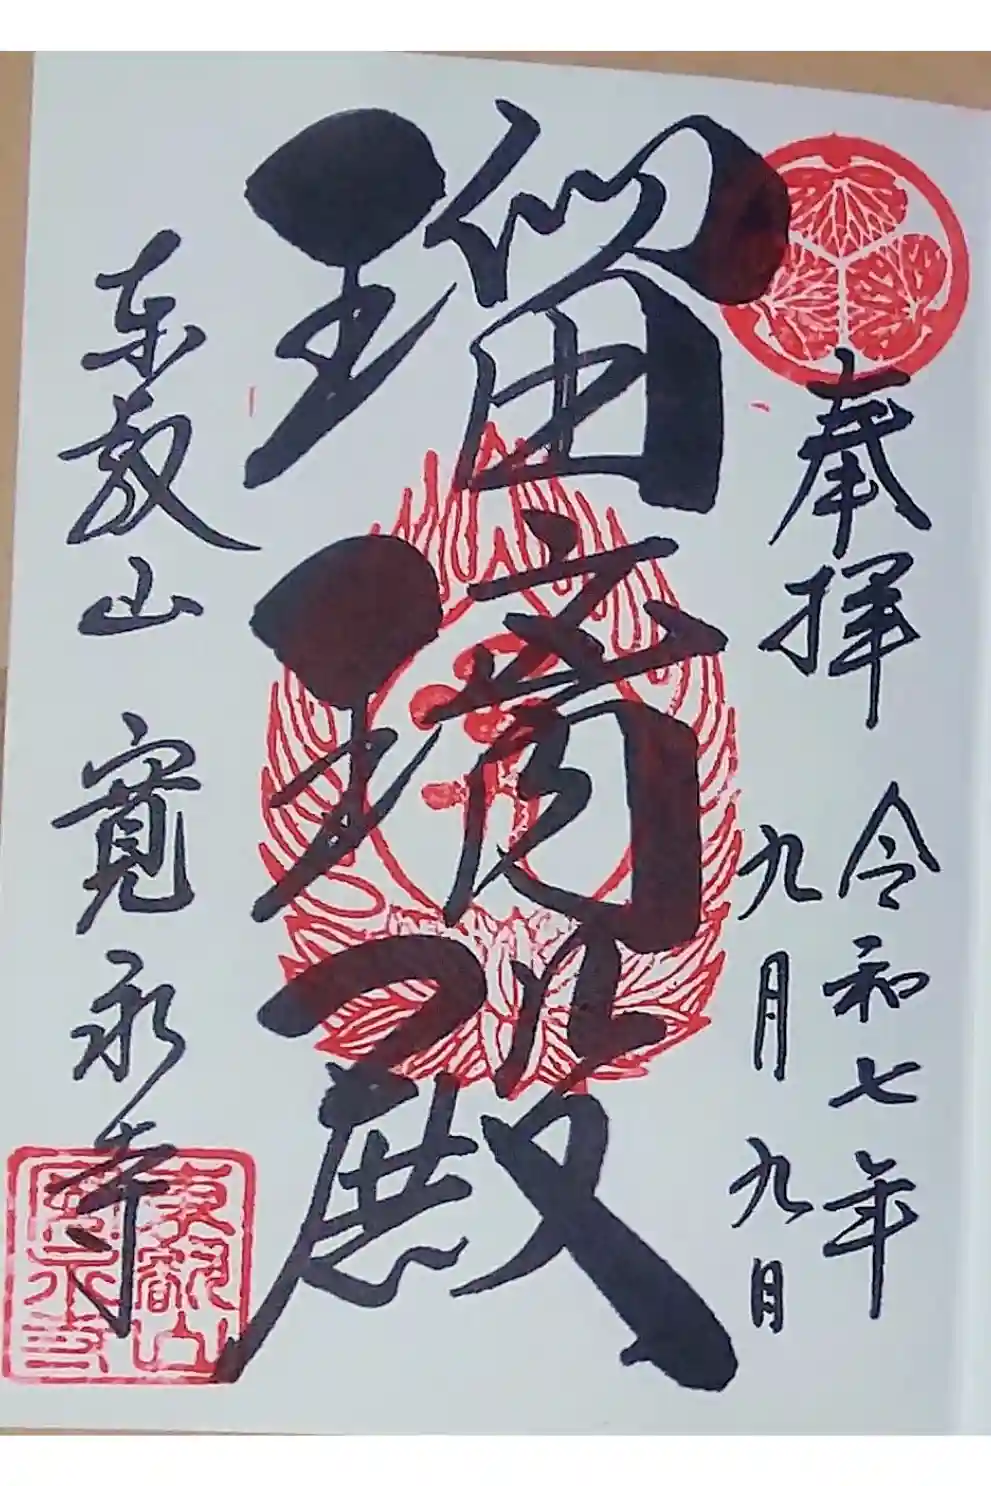 奉拝 令和七年
九月九日
瑠璃殿
東叡山 寛永寺
東叡山
寛永寺